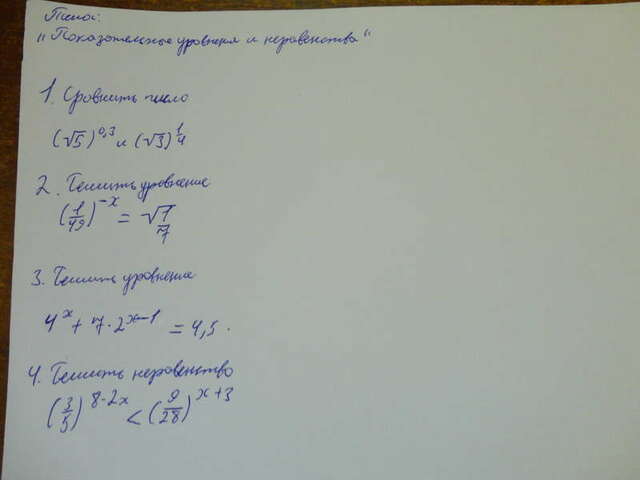 Тема:
"Показательные уровнения и неравенства"
1. Сровнить число
(√5)^0,3 и (√3)^1/4
2. Решить уровнение
(1/49)^-x = √1/7
3. Решить уровнение
4^x + 7·2^x-1 = 4,5.
4. Решить неровенство
(3/5)^8-2x < (9/28)^x+3